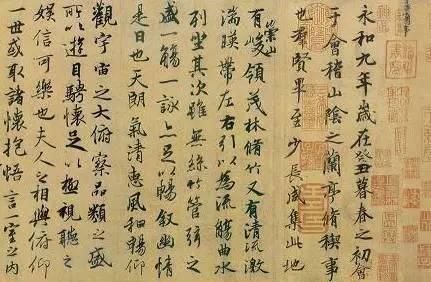 永和九年歲在癸丑暮春之初會
于會稽山陰之蘭亭脩稧事
也羣賢畢至少長咸集此地
有崇山峻領茂林脩竹又有清流激
湍暎帶左右引以為流觴曲水
列坐其次雖無絲竹管弦之
盛一觴一詠亦足以暢叙幽情
是日也天朗氣清惠風和暢仰
觀宇宙之大俯察品類之盛
所以遊目騁懷足以極視聽之
娛信可樂也夫人之相與俯仰
一世或取諸懷抱悟言一室之内